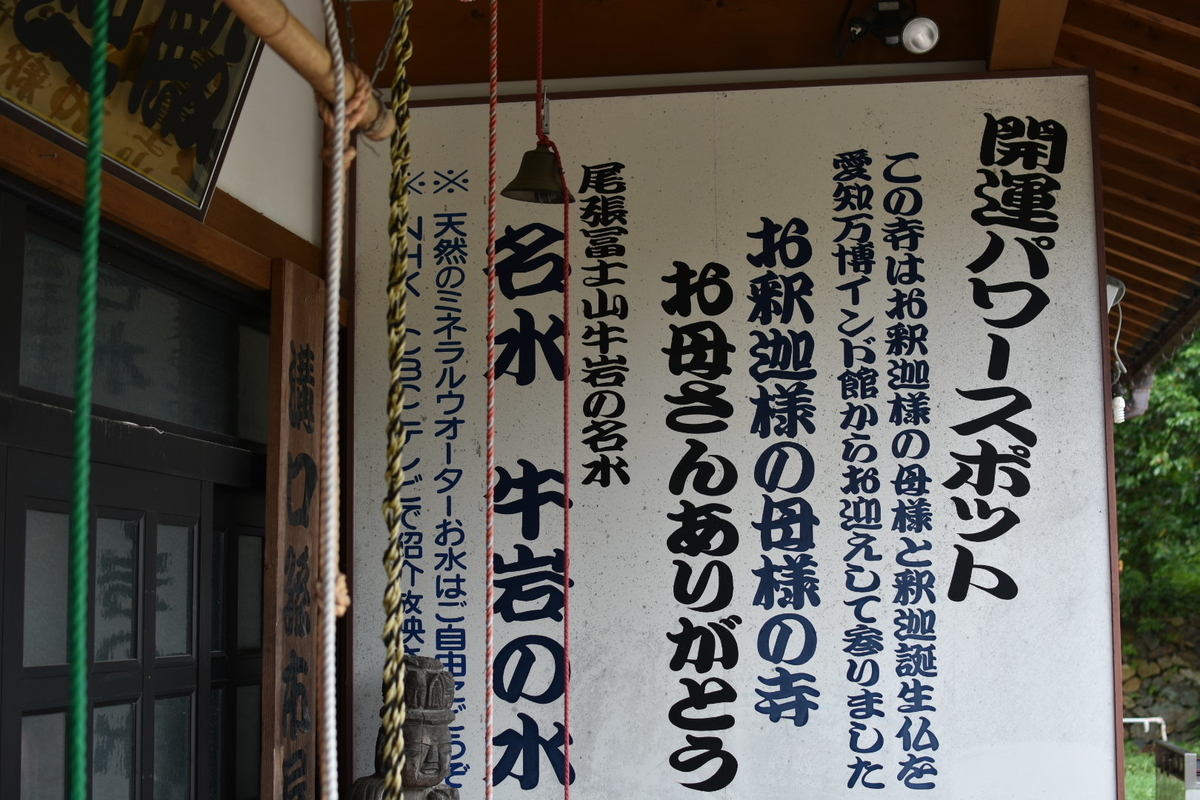 開運パワースポット
この寺はお釈迦様の母様と釈迦誕生仏を
愛知万博インド館からお迎えして参りました
お釈迦様の母様の寺
お母さんありがとう
尾張冨士山牛岩の名水
名水 牛岩の水
※ 天然のミネラルウォーターお水はご自由にどうぞ
※ NHK CBCテレビで紹介放映さ